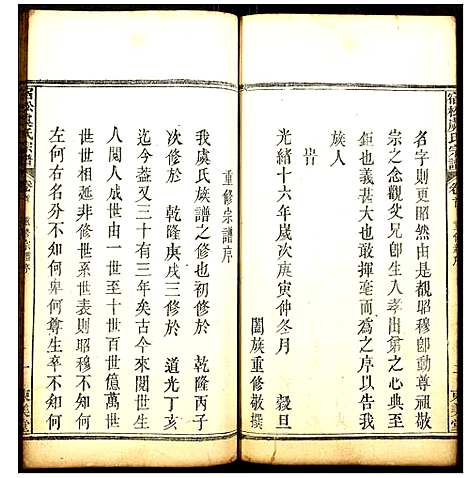 宿松虞氏宗譜
卷首
重修宗譜序
二
東美堂
名字則更昭然由是觀昭穆卽動尊祖敬
宗之念觀父兄卽生入孝出弟之心典至
鉅也義甚大也敢揮毫而爲之序以我
旹
光緒十六年歲次庚寅仲冬月 穀旦
闔族重修敬撰
重修宗譜序
我虞氏族譜之修也初修於 乾隆丙子
次修於 乾隆庚戌三修於 道光丁亥
至今蓋又三十有三年矣古今來閱生生
人閱人成世由一世至十世百世億萬世
世世相延非修世系世表則昭穆不知何
左何右名分不知何卑何尊生卒不知何
宿松虞氏宗譜
卷首
重修宗譜序
一
東美堂